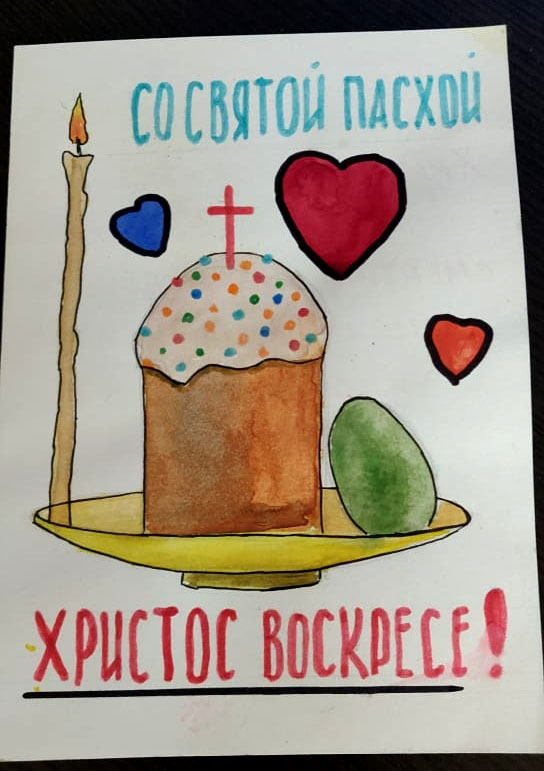 СО СВЯТОЙ ПАСХОЙ
ХРИСТОС ВОСКРЕСЕ!